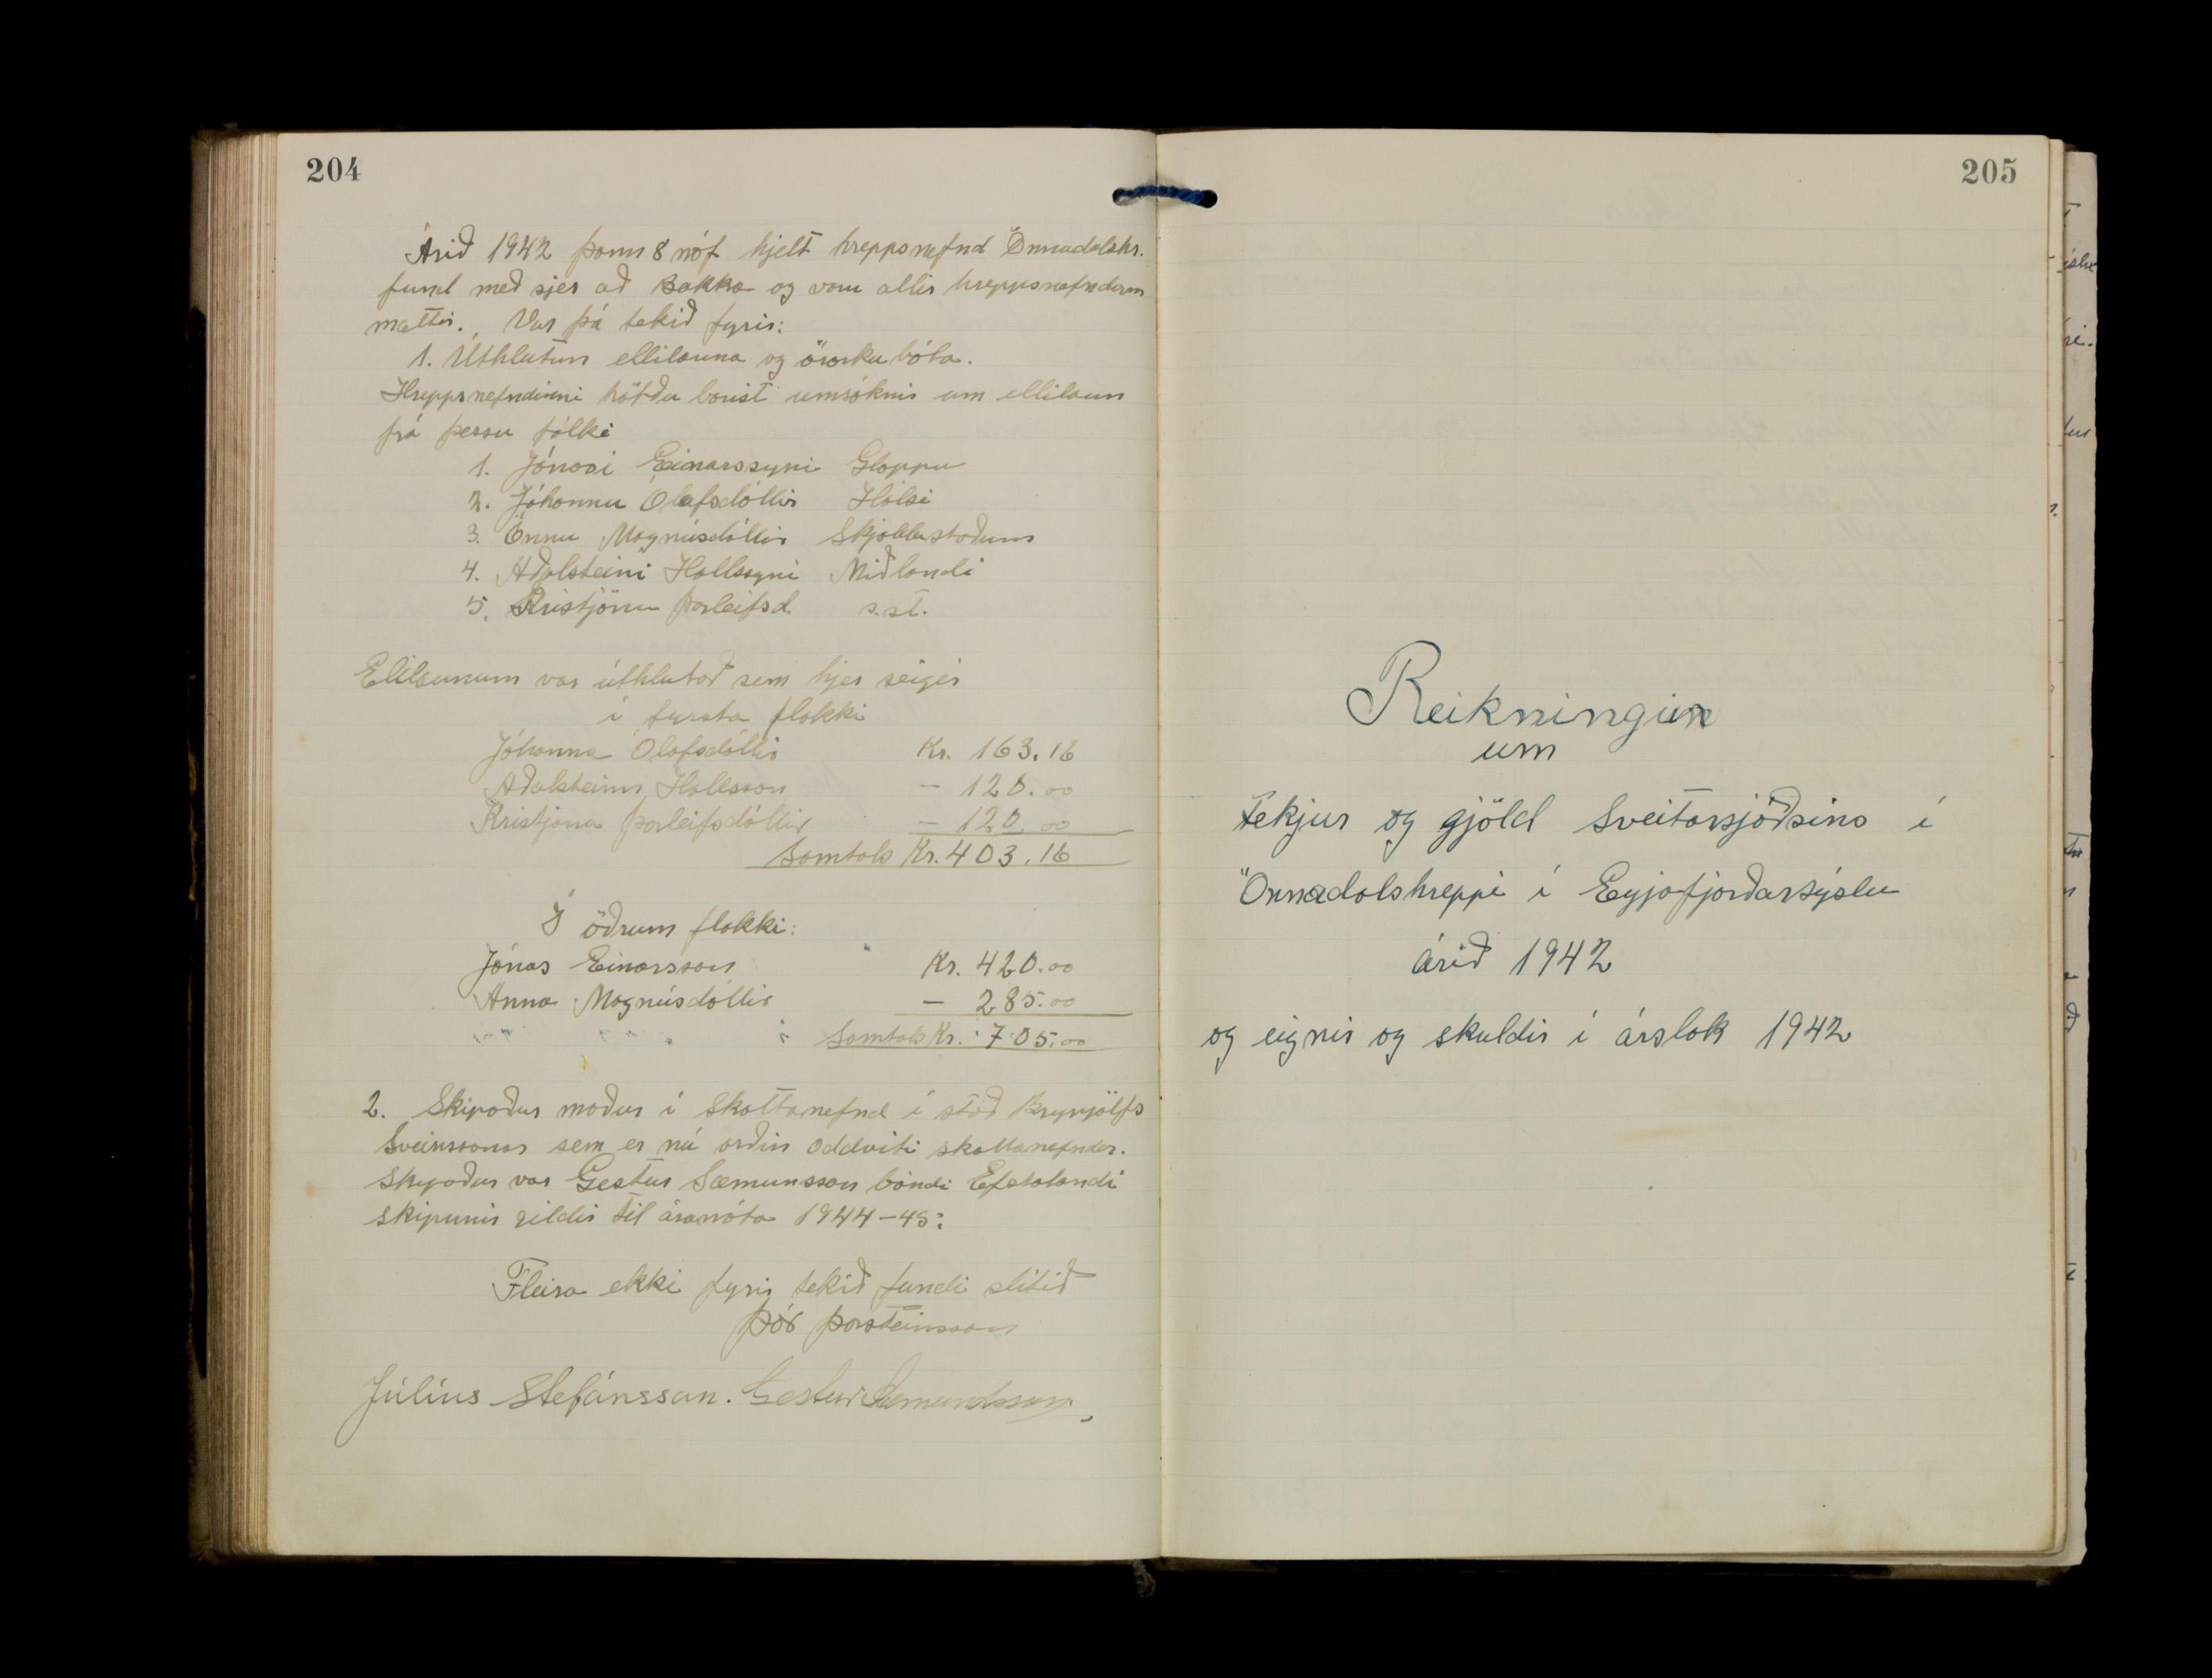 204
Árið 1942 þann 8 nóf hjelt hreppsnefnd Öxnadalshr.
fund með sjer að Bakka og voru allir hreppsnefndarm
mættir. Var þá tekið fyrir:
1. Úthlutun ellilauna og örorkubóta.
Hreppsnefndinni höfðu borist umsóknir um ellilaun
frá þessu fólki
1. Jónasi Einarssyni Gloppu
2. Jóhönnu Ólafsdóttir Hólsi
3. Önnu Magnúsdóttir Skjaldastöðum
4. Aðalsteini Hallssyni Miðlandi
5. Kristjönu Þorleifsd. s.st.
Ellilaunum var úthlutað sem hjer seigir
í fyrsta flokki
Jóhanna Ólafsdóttir Kr. 163.16
Aðalsteinn Hallsson — 120.00
Kristjana Þorleifsdóttir — 120.00
Samtals Kr. 403.16
Í öðrum flokki:
Jónas Einarsson Kr. 420.00
Anna Magnúsdóttir — 285.00
Samtals Kr. 705.00
2. Skipaður maður í Skattanefnd í stað Brynjólfs
Sveinssonar sem er nú orðin oddviti skattanefndar.
Skipaður var Gestur Sæmunsson bóndi Efstalandi
skipunin gildir til áramóta 1944-45:
Fleira ekki fyrir tekið fundi slitið
Þór Þorsteinsson
Júlíus Stefánssan. Gestur Sæmundsson,
205
Reikningur
um
tekjur og gjöld Sveitarsjóðsins í
Öxnadalshreppi í Eyjafjarðarsýslu
árið 1942
og eignir og skuldir í árslok 1942